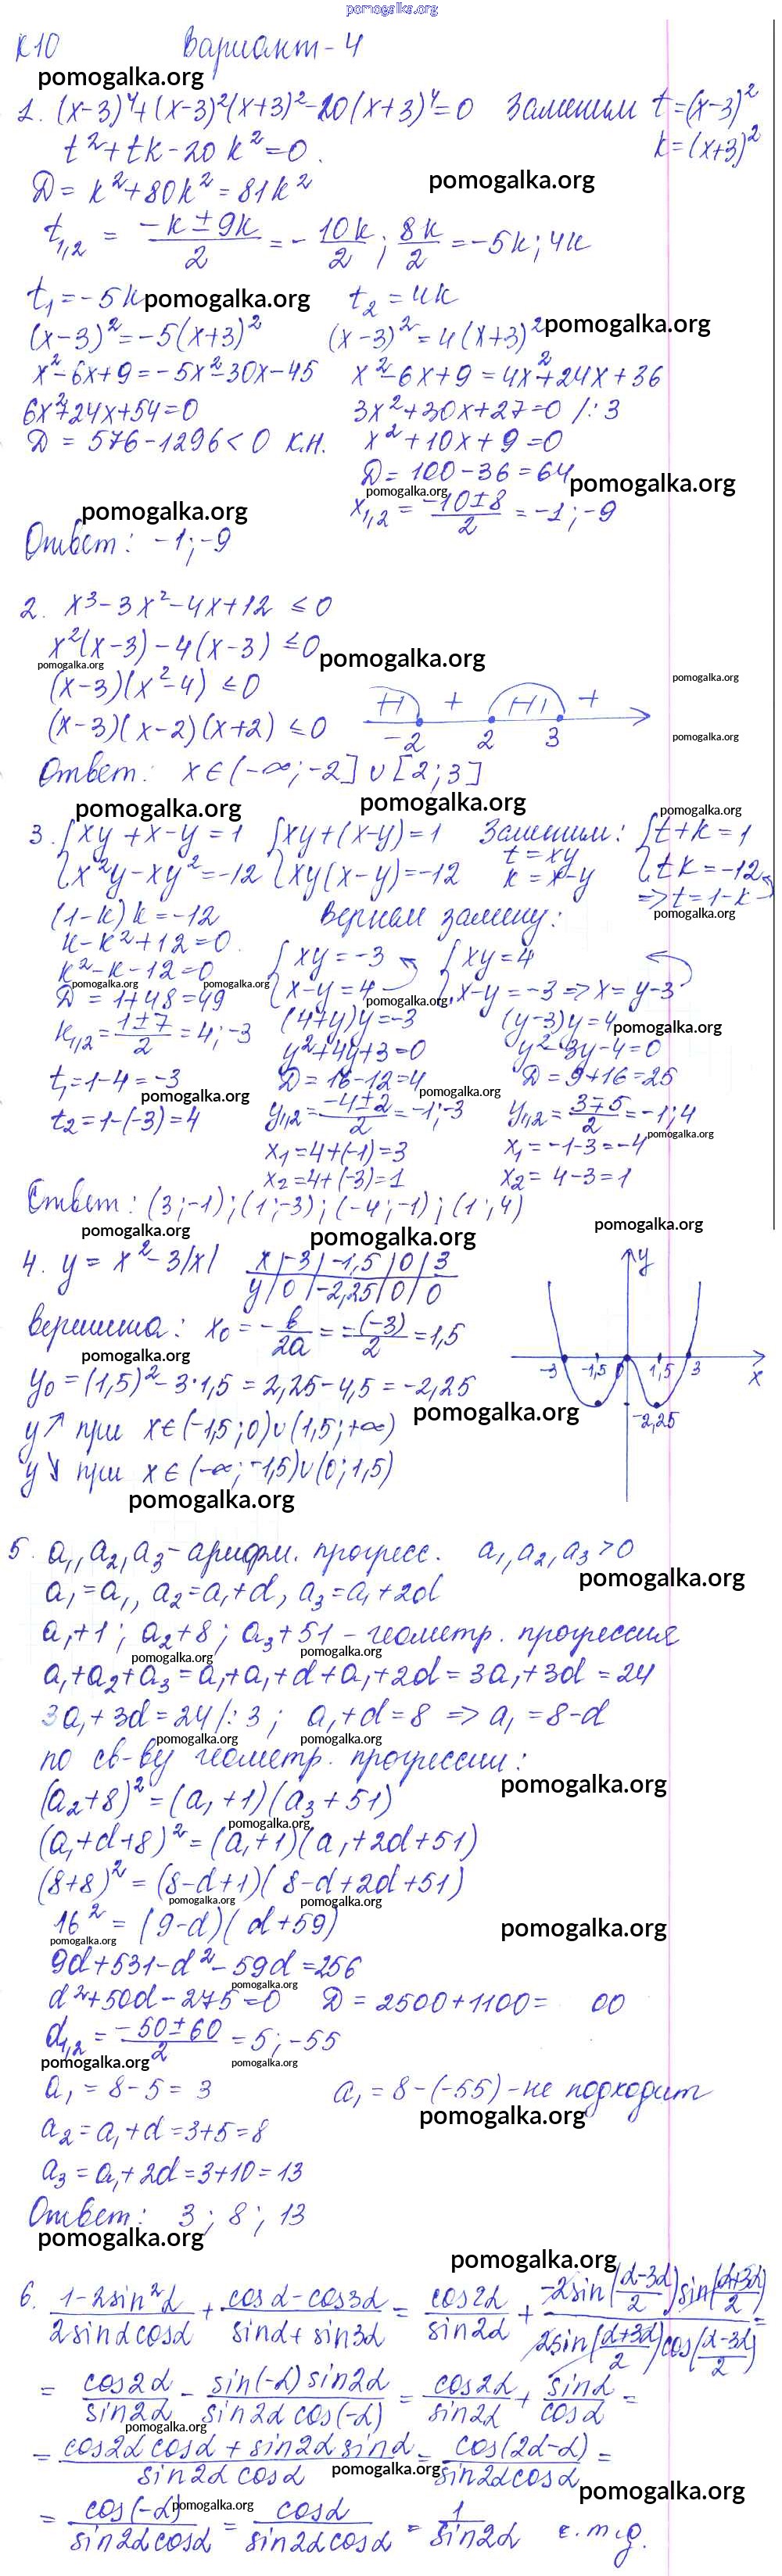 pomogalka.org
К10 Вариант-4
pomogalka.org
1. (x-3)⁴+(x-3)²(x+3)²-20(x+3)⁴=0 Заменим t=(x-3)²
k=(x+3)²
t²+tk-20k²=0.
Д=k²+80k²=81k²
pomogalka.org
t₁,₂ = (-k±9k)/2 = -10k/2; 8k/2 = -5k; 4k
t₁=-5k pomogalka.org t₂=4k
(x-3)²=-5(x+3)² (x-3)²=4(x+3)² pomogalka.org
x²-6x+9=-5x²-30x-45 x²-6x+9=4x²+24x+36
6x²+24x+54=0 3x²+30x+27=0 /:3
Д=576-1296<0 к.н. x²+10x+9=0
Д=100-36=64 pomogalka.org
pomogalka.org
pomogalka.org x₁,₂ = (-10±8)/2 = -1; -9
Ответ: -1; -9
2. x³-3x²-4x+12 ≤0
x²(x-3)-4(x-3) ≤0 pomogalka.org
pomogalka.org
(x-3)(x²-4) ≤0 pomogalka.org
(x-3)(x-2)(x+2) ≤0 + + -2 2 3 pomogalka.org
Ответ: x∈(-∞;-2]∪[2;3]
pomogalka.org pomogalka.org pomogalka.org
3. {xy+x-y=1 {xy+(x-y)=1 Заменим: {t+k=1
{x²y-xy²=-12 {xy(x-y)=-12 t=xy k=x-y {tk=-12
=>t=1-k
pomogalka.org
(1-k)k=-12 Вернем замену:
k-k²+12=0
k²-k-12=0 {xy=-3 {xy=4
pomogalka.org pomogalka.org
Д=1+48=49 {x-y=4 {x-y=-3=>x=y-3
pomogalka.org
k₁,₂=(1±7)/2=4;-3 (4+y)y=-3 (y-3)y=4 pomogalka.org
y²+4y+3=0 y²-3y-4=0
t₁=1-4=-3 Д=16-12=4 Д=9+16=25
pomogalka.org pomogalka.org
t₂=1-(-3)=4 y₁,₂=(-4±2)/2=-1;-3 y₁,₂=(3∓5)/2=-1;4
x₁=4+(-1)=3 x₁=-1-3=-4 pomogalka.org
x₂=4+(-3)=1 x₂=4-3=1
Ответ: (3;-1); (1;-3); (-4;-1); (1;4)
pomogalka.org pomogalka.org pomogalka.org
4. y=x²-3|x| x | -3 | -1,5 | 0 | 3
y | 0 | -2,25 | 0 | 0
y
вершина: x₀=-b/2a=-(-3)/2=1,5
pomogalka.org
-3 -1,5 0 1,5 3 x
y₀=(1,5)²-3·1,5=2,25-4,5=-2,25
pomogalka.org -2,25
y↗ при x∈(-1,5;0)∪(1,5;+∞)
y↘ при x∈(-∞;-1,5)∪(0;1,5)
pomogalka.org
5. a₁,a₂,a₃-арифм. прогресс. a₁,a₂,a₃>0
pomogalka.org
a₁=a₁, a₂=a₁+d, a₃=a₁+2d
a₁+1; a₂+8; a₃+51 - геометр. прогрессия
pomogalka.org pomogalka.org
a₁+a₂+a₃=a₁+a₁+d+a₁+2d=3a₁+3d=24
3a₁+3d=24 /:3; a₁+d=8 => a₁=8-d
pomogalka.org pomogalka.org
по св-ву геометр. прогрессии:
pomogalka.org
(a₂+8)²=(a₁+1)(a₃+51)
pomogalka.org
(a₁+d+8)²=(a₁+1)(a₁+2d+51)
(8+8)²=(8-d+1)(8-d+2d+51)
pomogalka.org pomogalka.org
16²=(9-d)(d+59) pomogalka.org
pomogalka.org
9d+531-d²-59d=256
pomogalka.org
d²+50d-275=0 Д=2500+1100= 00
d₁,₂=(-50±60)/2=5;-55
pomogalka.org pomogalka.org
a₁=8-5=3 a₁=8-(-55)-не подходит
pomogalka.org
a₂=a₁+d=3+5=8
a₃=a₁+2d=3+10=13
Ответ: 3; 8; 13
pomogalka.org
pomogalka.org
6. (1-2sin²α)/(2sinαcosα) + (cosα-cos3α)/(sinα+sin3α) = cos2α/sin2α + (-2sin((α-3α)/2)sin((α+3α)/2))/(2sin((α+3α)/2)cos((α-3α)/2)) =
= cos2α/sin2α - (sin(-α)sin2α)/(sin2αcos(-α)) = cos2α/sin2α + sinα/cosα =
pomogalka.org
= (cos2αcosα+sin2αsinα)/(sin2αcosα) = cos(2α-α)/(sin2αcosα) =
pomogalka.org
pomogalka.org
pomogalka.org
= cos(-α)/(sin2αcosα) = cosα/(sin2αcosα) = 1/sin2α ч.т.д.